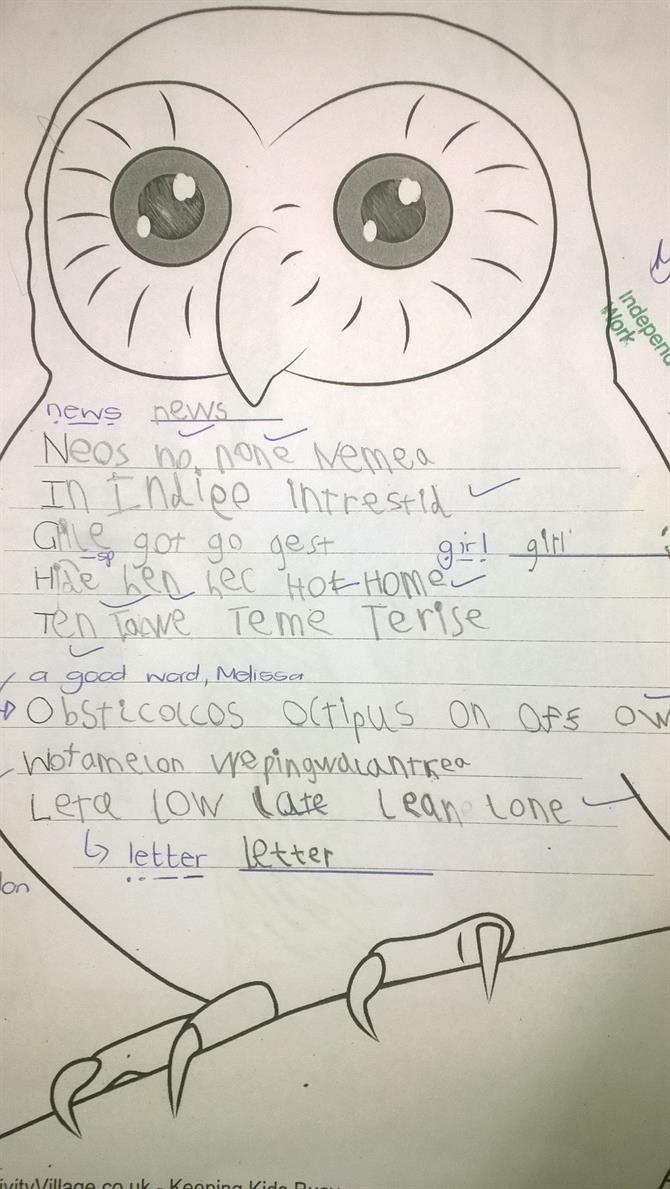 Independ
Work
news news
Neos no, none Nemea
In Indigo intrestid
got go gest girl girl
sp
Hide hen hec Hot HOME
Ten Teme Terise
a good word, Melissa
Obsticolcos octipus on offs ow
Wotamelon
Leta low late lean lone
letter letter
lon
ivityVillage.co.uk - Keeping Kids Busy